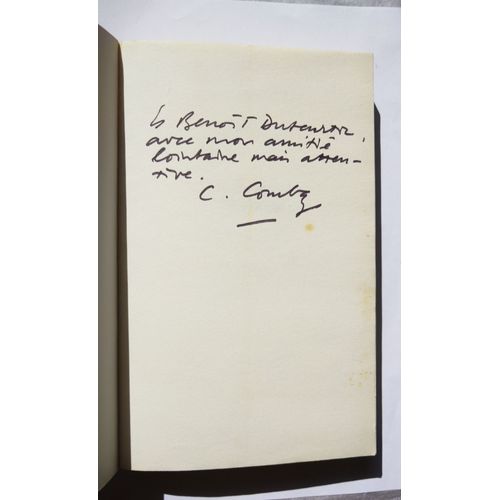 à Benoît Duteurtre,
avec mon amitié
lointaine mais atten-
tive.
C. Combaz